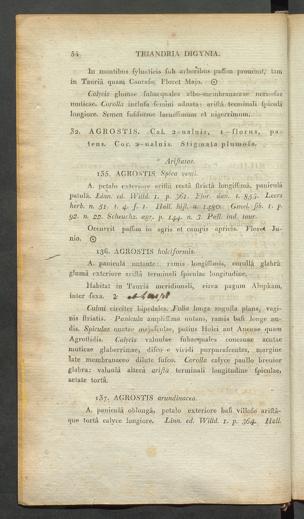 54. TRIANDRIA DIGYNIA.
In montibus sylvaticis sub arboribus passim provenit, tam
in Tauria quam Caucaso. Floret Majo. ☉
Calycis glumae subaequales albo-membranaceae nervosae
muticae. Corolla inclusa semini adnata: arista terminali spicula
longiore. Semen subfuscum laevissimum et nigerrimum.
32. AGROSTIS. Cal. 2-valvis, 1-florus, pa-
tens. Cor. 2-valvis. Stigmata plumosa.
* Aristatae.
135. AGROSTIS Spica venti.
A. petalo exteriore arista recta stricta longissima, panicula
patula. Linn. ed. Willd. 1. p. 361. Flor. dan. t. 853. Leers
herb. n. 51. t. 4. f. 1. Hall. hist. n. 1480. Gmel. sib. 1. p.
92. n. 22. Scheuchz. agr. p. 144. n. 3. Pall. ind. taur.
Occurrit passim in agris et campis apricis. Floret Ju-
nio. ☉
136. AGROSTIS holciformis.
A. panicula nutante: ramis longissimis, corolla glabra
gluma exteriore arista terminali spiculae longitudine.
Habitat in Tauria meridionali, circa pagum Alupkam,
inter saxa. ♃
Culmi circiter bipedales. Folia longa angusta plana, vagi-
nis striatis. Panicula amplissima nutans, ramis basi longe nu-
dis. Spiculae quater majusculae, potius Holci aut Avenae quam
Agrostidis. Calycis valvulae subaequales concavae acutae
muticae glaberrimae, disco e viridi purpurascentes, margine
late membranaceo dilute fusco. Corolla calyce paullo brevior
glabra: valvula altera arista terminali longitudine spiculae,
aetate torta.
137. AGROSTIS arundinacea.
A. panicula oblonga, petalo exteriore basi villoso arista-
que torta calyce longiore. Linn. ed. Willd. 1. p. 364. Hall.